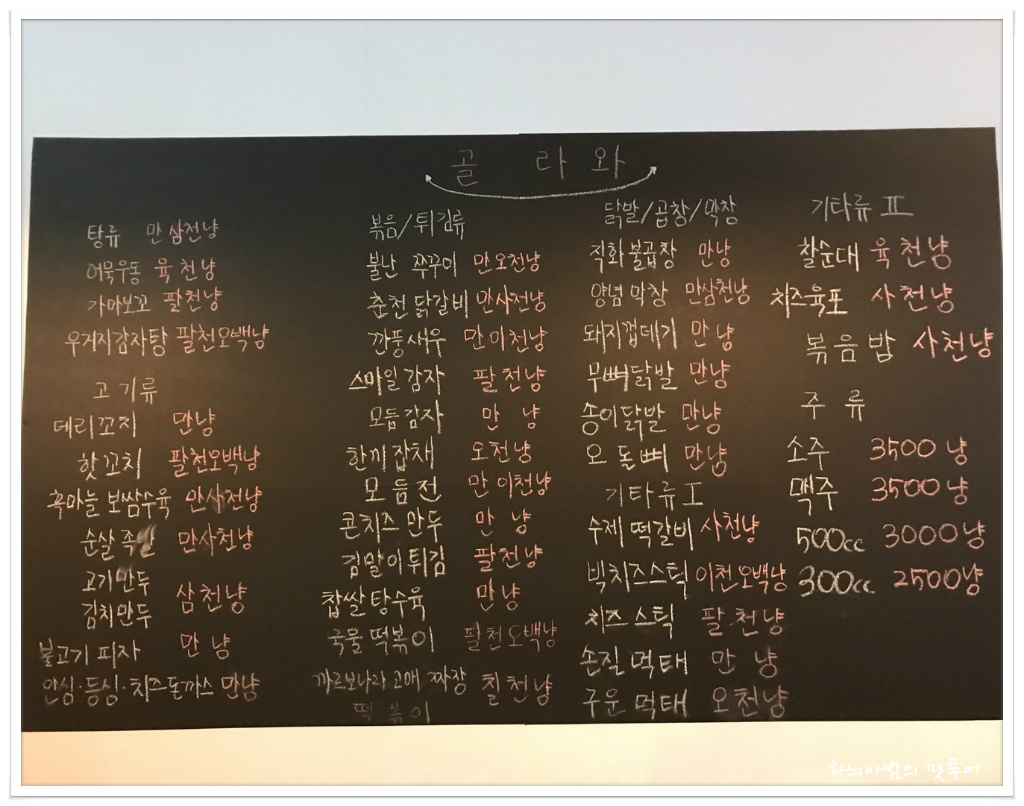 골라와
탕류 만삼천냥
어묵우동 육천냥
가마보꼬 팔천냥
우거지감자탕 팔천오백냥
고기류
데리꼬치 만냥
핫꼬치 팔천오백냥
흑마늘 보쌈수육 만사천냥
순살족발 만사천냥
고기만두
김치만두 삼천냥
불고기 피자 만냥
안심·등심·치즈돈까스 만냥
볶음/튀김류
불난 쭈꾸미 만오천냥
춘천 닭갈비 만사천냥
깐풍새우 만이천냥
스마일감자 팔천냥
모듬감자 만냥
한끼잡채 오천냥
모듬전 만이천냥
콘치즈만두 만냥
김말이튀김 팔천냥
찹쌀탕수육 만냥
국물떡볶이 팔천오백냥
까르보나라 고매 짜장 칠천냥
떡볶이
닭발/곱창/막창
직화불곱창 만냥
양념막창 만삼천냥
돼지껍데기 만냥
무뼈닭발 만냥
송이닭발 만냥
오돌뼈 만냥
기타류 I
수제 떡갈비 사천냥
빅치즈스틱 이천오백냥
치즈스틱 팔천냥
손질먹태 만냥
구운먹태 오천냥
기타류 II
찰순대 육천냥
치즈육포 사천냥
볶음밥 사천냥
주류
소주 3500냥
맥주 3500냥
500cc 3000냥
300cc 2500냥
하늬아범의 맛투어